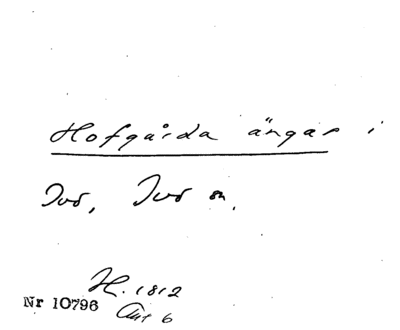 Hofgårda ängar i
Tvd, Tvd sn.
H. 1812
Nr 10796
Akt 6